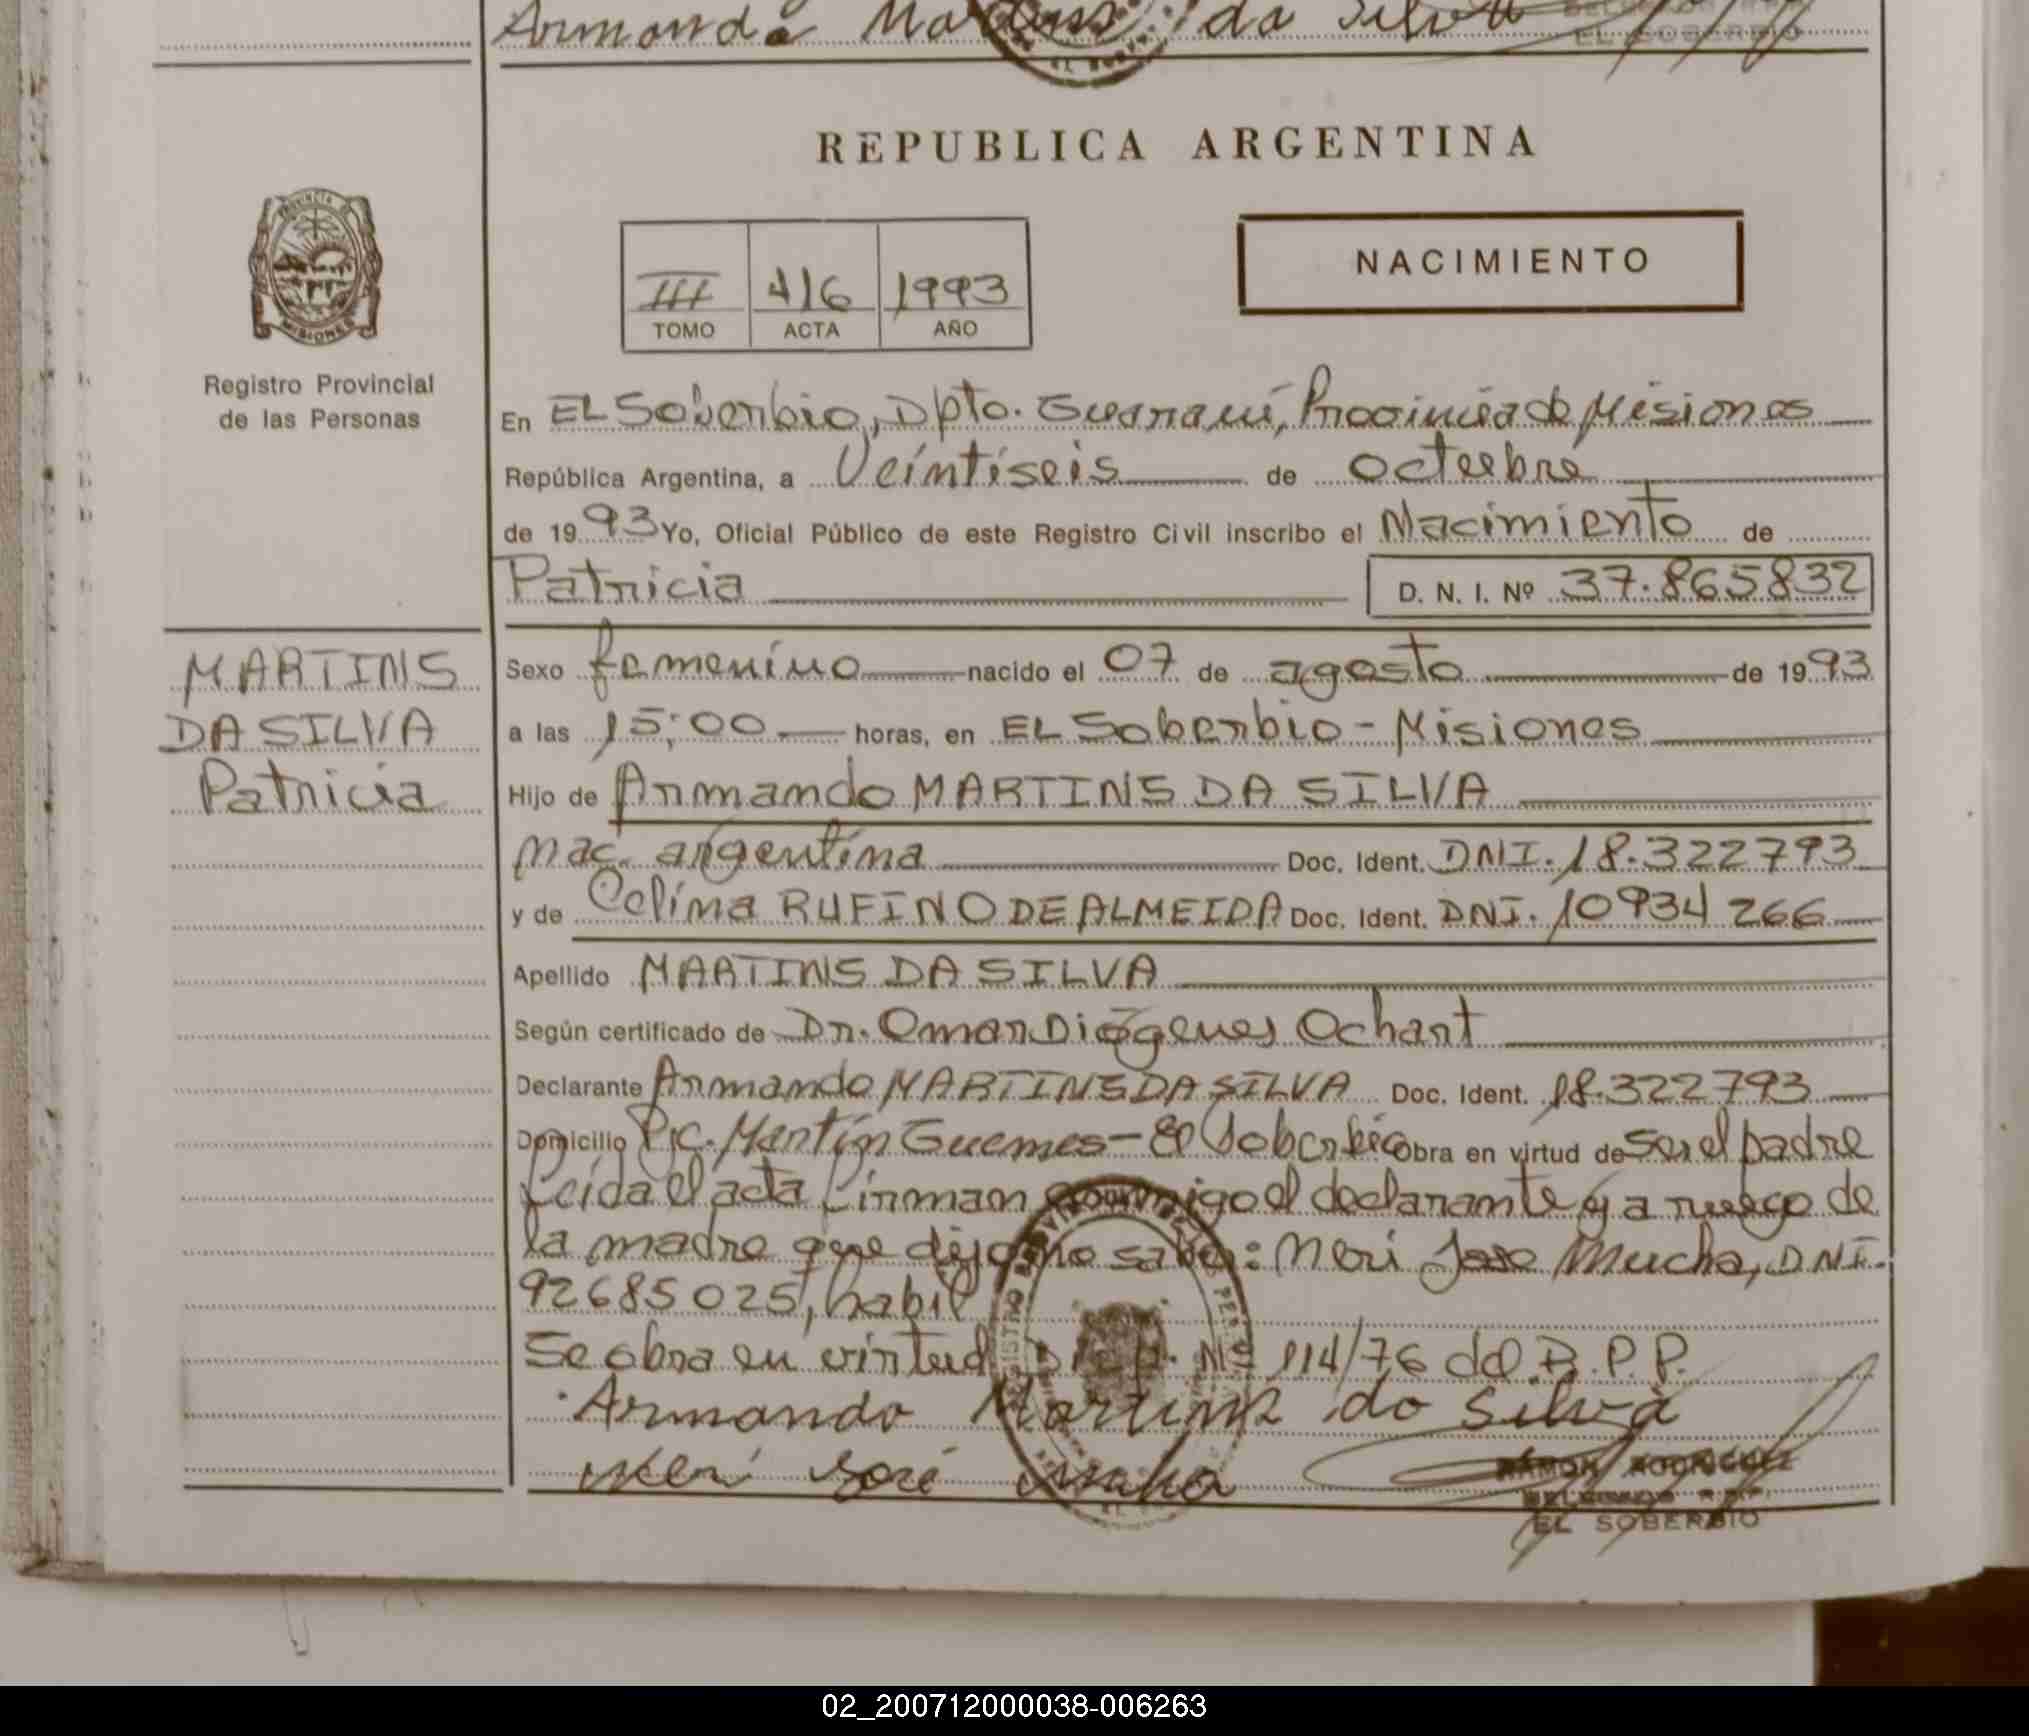 Armando Martins da Silva
EL SOBERBIO
REPUBLICA ARGENTINA
PROVINCIA DE
MISIONES
Registro Provincial
de las Personas
III 416 1993
TOMO ACTA AÑO
NACIMIENTO
En EL Soberbio, Dpto. Guaraní, Provincia de Misiones
República Argentina, a Veintiseis de octubre
de 1993 Yo, Oficial Público de este Registro Civil inscribo el Nacimiento de
Patricia D. N. I. Nº 37.865832
MARTINS
DA SILVA
Patricia
Sexo femenino nacido el 07 de agosto de 1993
a las 15:00 horas, en EL Soberbio - Misiones
Hijo de Armando MARTINS DA SILVA
nac. argentina Doc. Ident. DNI. 18.322793
y de Celina RUFINO DE ALMEIDA Doc. Ident. DNI. 10934266
Apellido MARTINS DA SILVA
Según certificado de Dr. Omar Diógenes Ochart
Declarante Armando MARTINS DA SILVA Doc. Ident. 18.322793
Domicilio Pic. Martín Guemes - El Soberbio obra en virtud de ser el padre
Leida el acta firman conmigo el declarante y a ruego de
la madre que dijo no saber: Neri Jose Mucha, DNI.
92685025, habil
Se obra en virtud Nº 114/76 del R.P.P.
Armando Martins da Silva
Neri José Mucha
RAMON RODRIGUEZ
DELEGADO R.P.P.
EL SOBERBIO
02_200712000038-006263